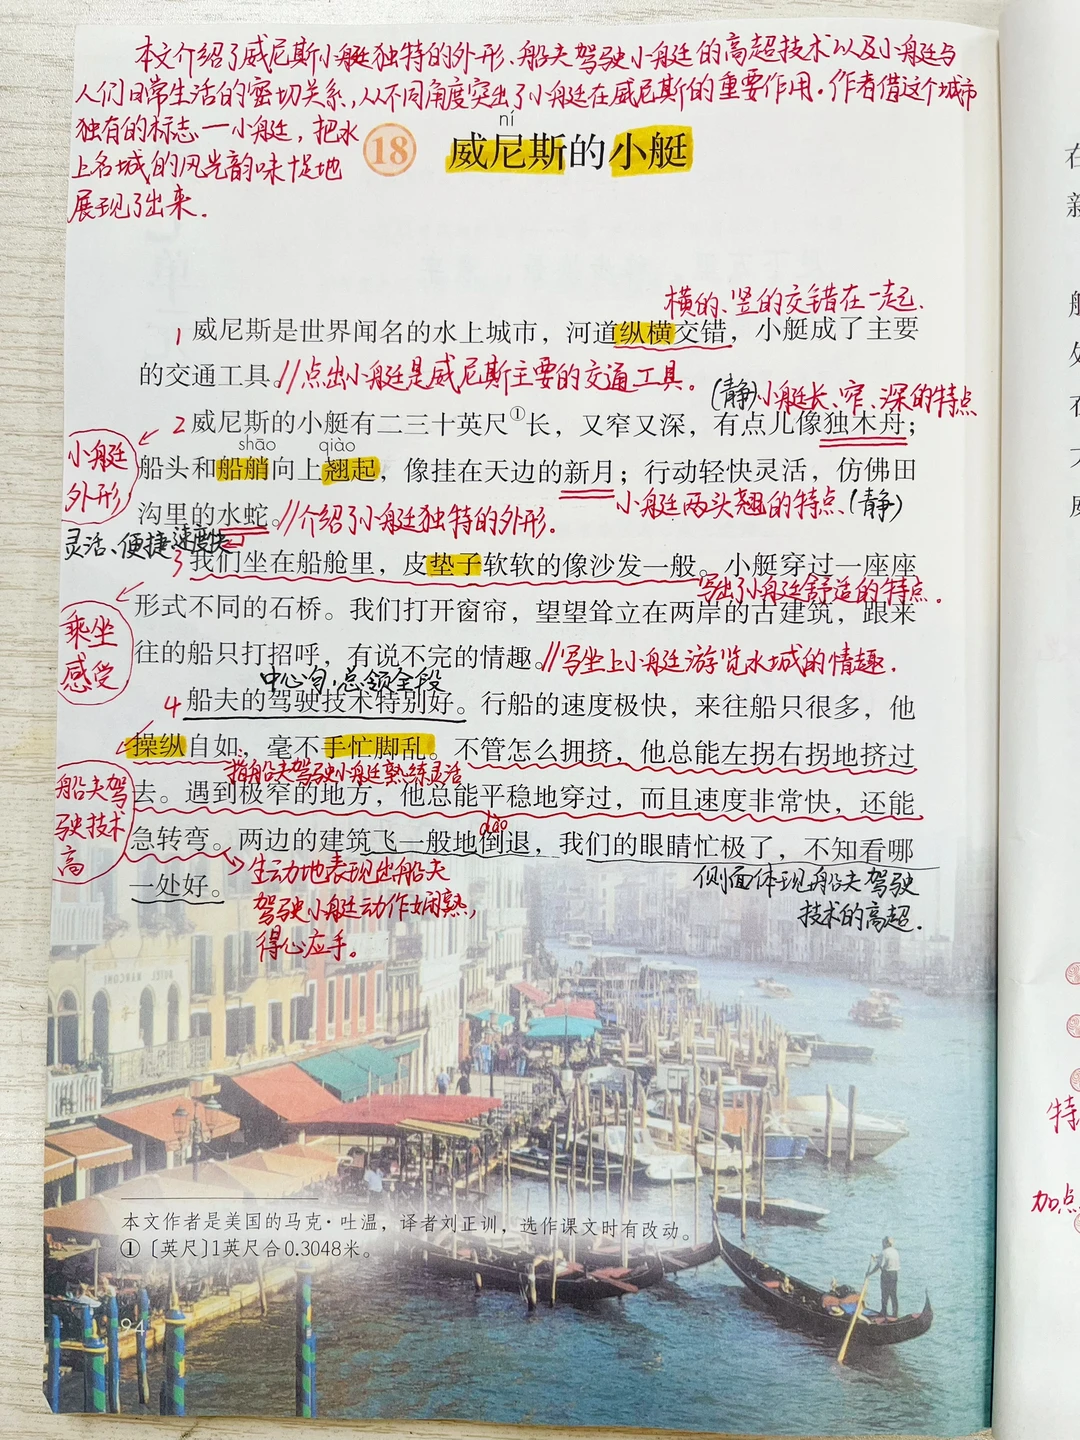 本文介绍了威尼斯小艇独特的外形、船夫驾驶小艇的高超技术以及小艇与
人们日常生活的密切关系，从不同角度突出了小艇在威尼斯的重要作用。作者借这个城市
独有的标志—小艇，把水
上名城的风光韵味十足地
展现了出来．
ní
18 威尼斯的小艇
横的、竖的交错在一起．
1 威尼斯是世界闻名的水上城市，河道纵横交错，小艇成了主要
的交通工具。//点出小艇是威尼斯主要的交通工具．
(静)小艇长、窄、深的特点
2 威尼斯的小艇有二三十英尺①长，又窄又深，有点儿像独木舟；
shāo qiào
小艇
外形
船头和船艄向上翘起，像挂在天边的新月；行动轻快灵活，仿佛田
小艇两头翘的特点(静)
沟里的水蛇。//介绍了小艇独特的外形．
灵活、便捷速度快
3 我们坐在船舱里，皮垫子软软的像沙发一般。小艇穿过一座座
写出了小艇舒适的特点．
乘坐
感受
形式不同的石桥。我们打开窗帘，望望耸立在两岸的古建筑，跟来
往的船只打招呼，有说不完的情趣。//写坐上小艇游览水城的情趣．
中心句，总领全段
4 船夫的驾驶技术特别好。行船的速度极快，来往船只很多，他
操纵自如，毫不手忙脚乱。不管怎么拥挤，他总能左拐右拐地挤过
指船夫驾驶小艇熟练灵活
船夫驾
驶技术
高
去。遇到极窄的地方，他总能平稳地穿过，而且速度非常快，还能
dào
急转弯。两边的建筑飞一般地倒退，我们的眼睛忙极了，不知看哪
一处好。
生动地表现出船夫
驾驶小艇动作娴熟，
得心应手。
侧面体现船夫驾驶
技术的高超．
本文作者是美国的马克·吐温，译者刘正训，选作课文时有改动。
①〔英尺〕1英尺合0.3048米。
94
在
新
船
处
特
加点